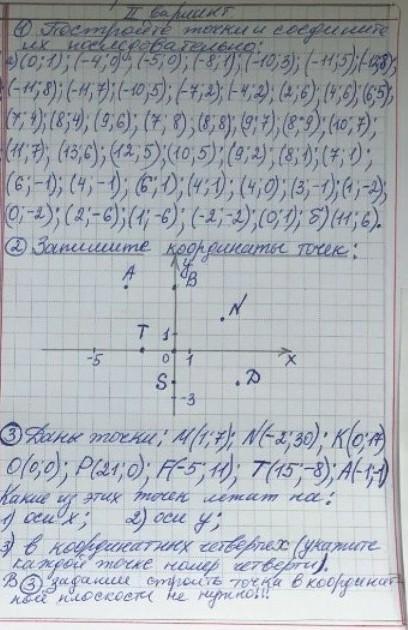 II вариант.
① Постройте точки и соедините
их последовательно:
а) (0;1); (-4;0); (-5;0); (-8;1); (-10;3); (-11;5);
(-11;8); (-11;7); (-10;5); (-7;2); (-4;2); (2;6); (4;6); (6;5);
(7;4); (8;4), (9,6); (7; 8), (8;8); (9;7); (8;9); (10;7);
(11;7), (13;6); (12,5); (10;5); (9;2); (8;1); (7;1);
(6;-1); (4,-1), (6;1); (4;1), (4;0), (3,-1); (1,-2);
(0;-2); (2;-6); (1;-6), (-2,-2); (0;1); б) (11;6).
② Запишите координаты точек:
y
A B
N
T 1
-5 0 1 x
S D
-3
③ Даны точки; M(1;7); N(-2;30); K(0;17)
O(0;0); P(21;0); F(-5;11); T(15;-8); A(-1;-1)
Какие из этих точек лежат на:
1) оси x; 2) оси y;
3) в координатных четвертях (укажите
каждой точке номер четверти).
В ③ задании строить точки в координат-
ной плоскости не нужно!!!